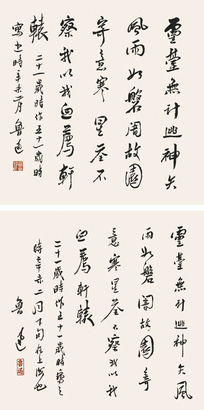 靈臺無計逃神矢
風雨如磐闇故園
寄意寒星荃不
察我以我血薦軒
轅
二十一歲時作五十一歲時
寫之時辛未二月
魯迅
靈臺無計逃神矢風
雨如磐闇故園寄
意寒星荃不察我以我
血薦軒轅
二十一歲時作五十一歲時寫之
時辛未二月下旬在上海也
魯迅